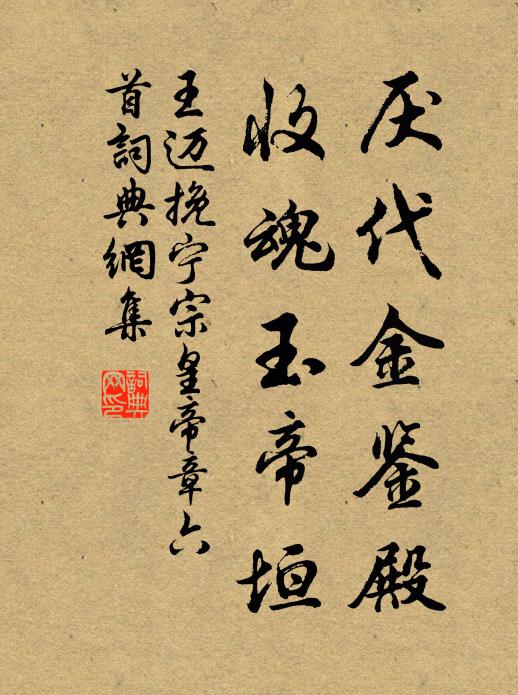 厌代金鉴殿
收魂玉帝垣
王迈挽宁宗皇帝章六
首詞典網集
詞典